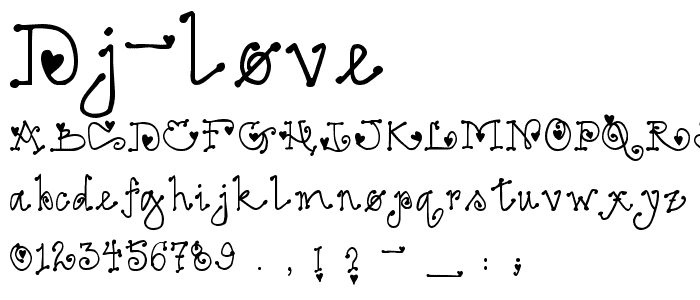 Dj-love
ABCDEFGHIJKLMNOPQRS
abcdefghijklmnopqrstuvwxyz
0123456789 . , ! ? - _ : ;